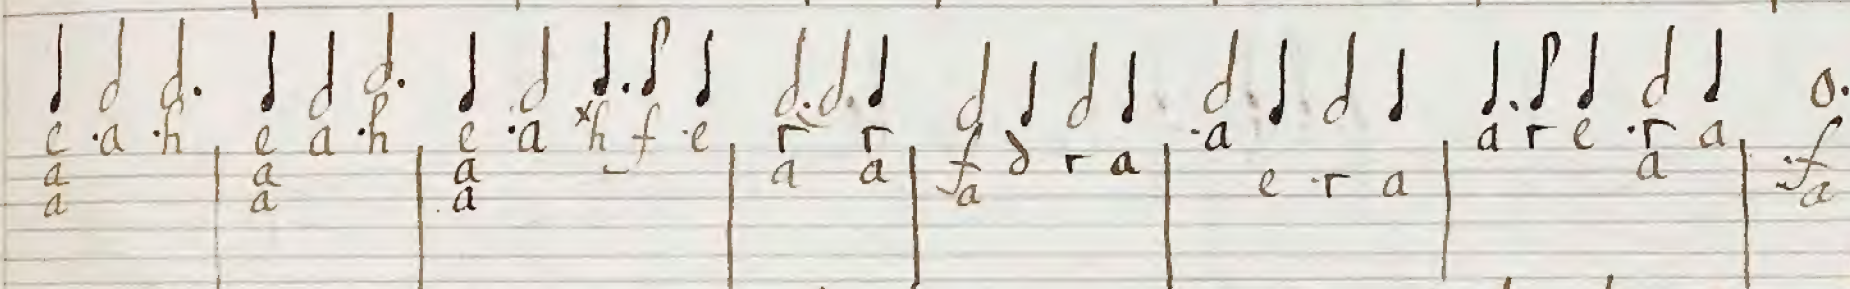 e a h e a h e a h f e r r f d r a a a r e r a f
a a a a a e r a a a
a a a a